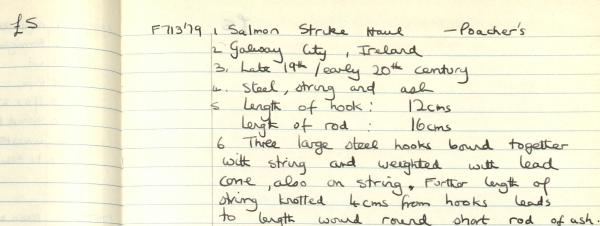 £5
F713'79 1 Salmon Strike Haul - Poacher's
2 Galway City, Ireland
3. Late 19th/early 20th century
4. Steel, string and ash
5 Length of hook: 12cms
Length of rod: 16cms
6 Three large steel hooks bound together
with string and weighted with lead
cone, also on string. Further length of
string knotted 4cms from hooks leads
to length wound round short rod of ash.